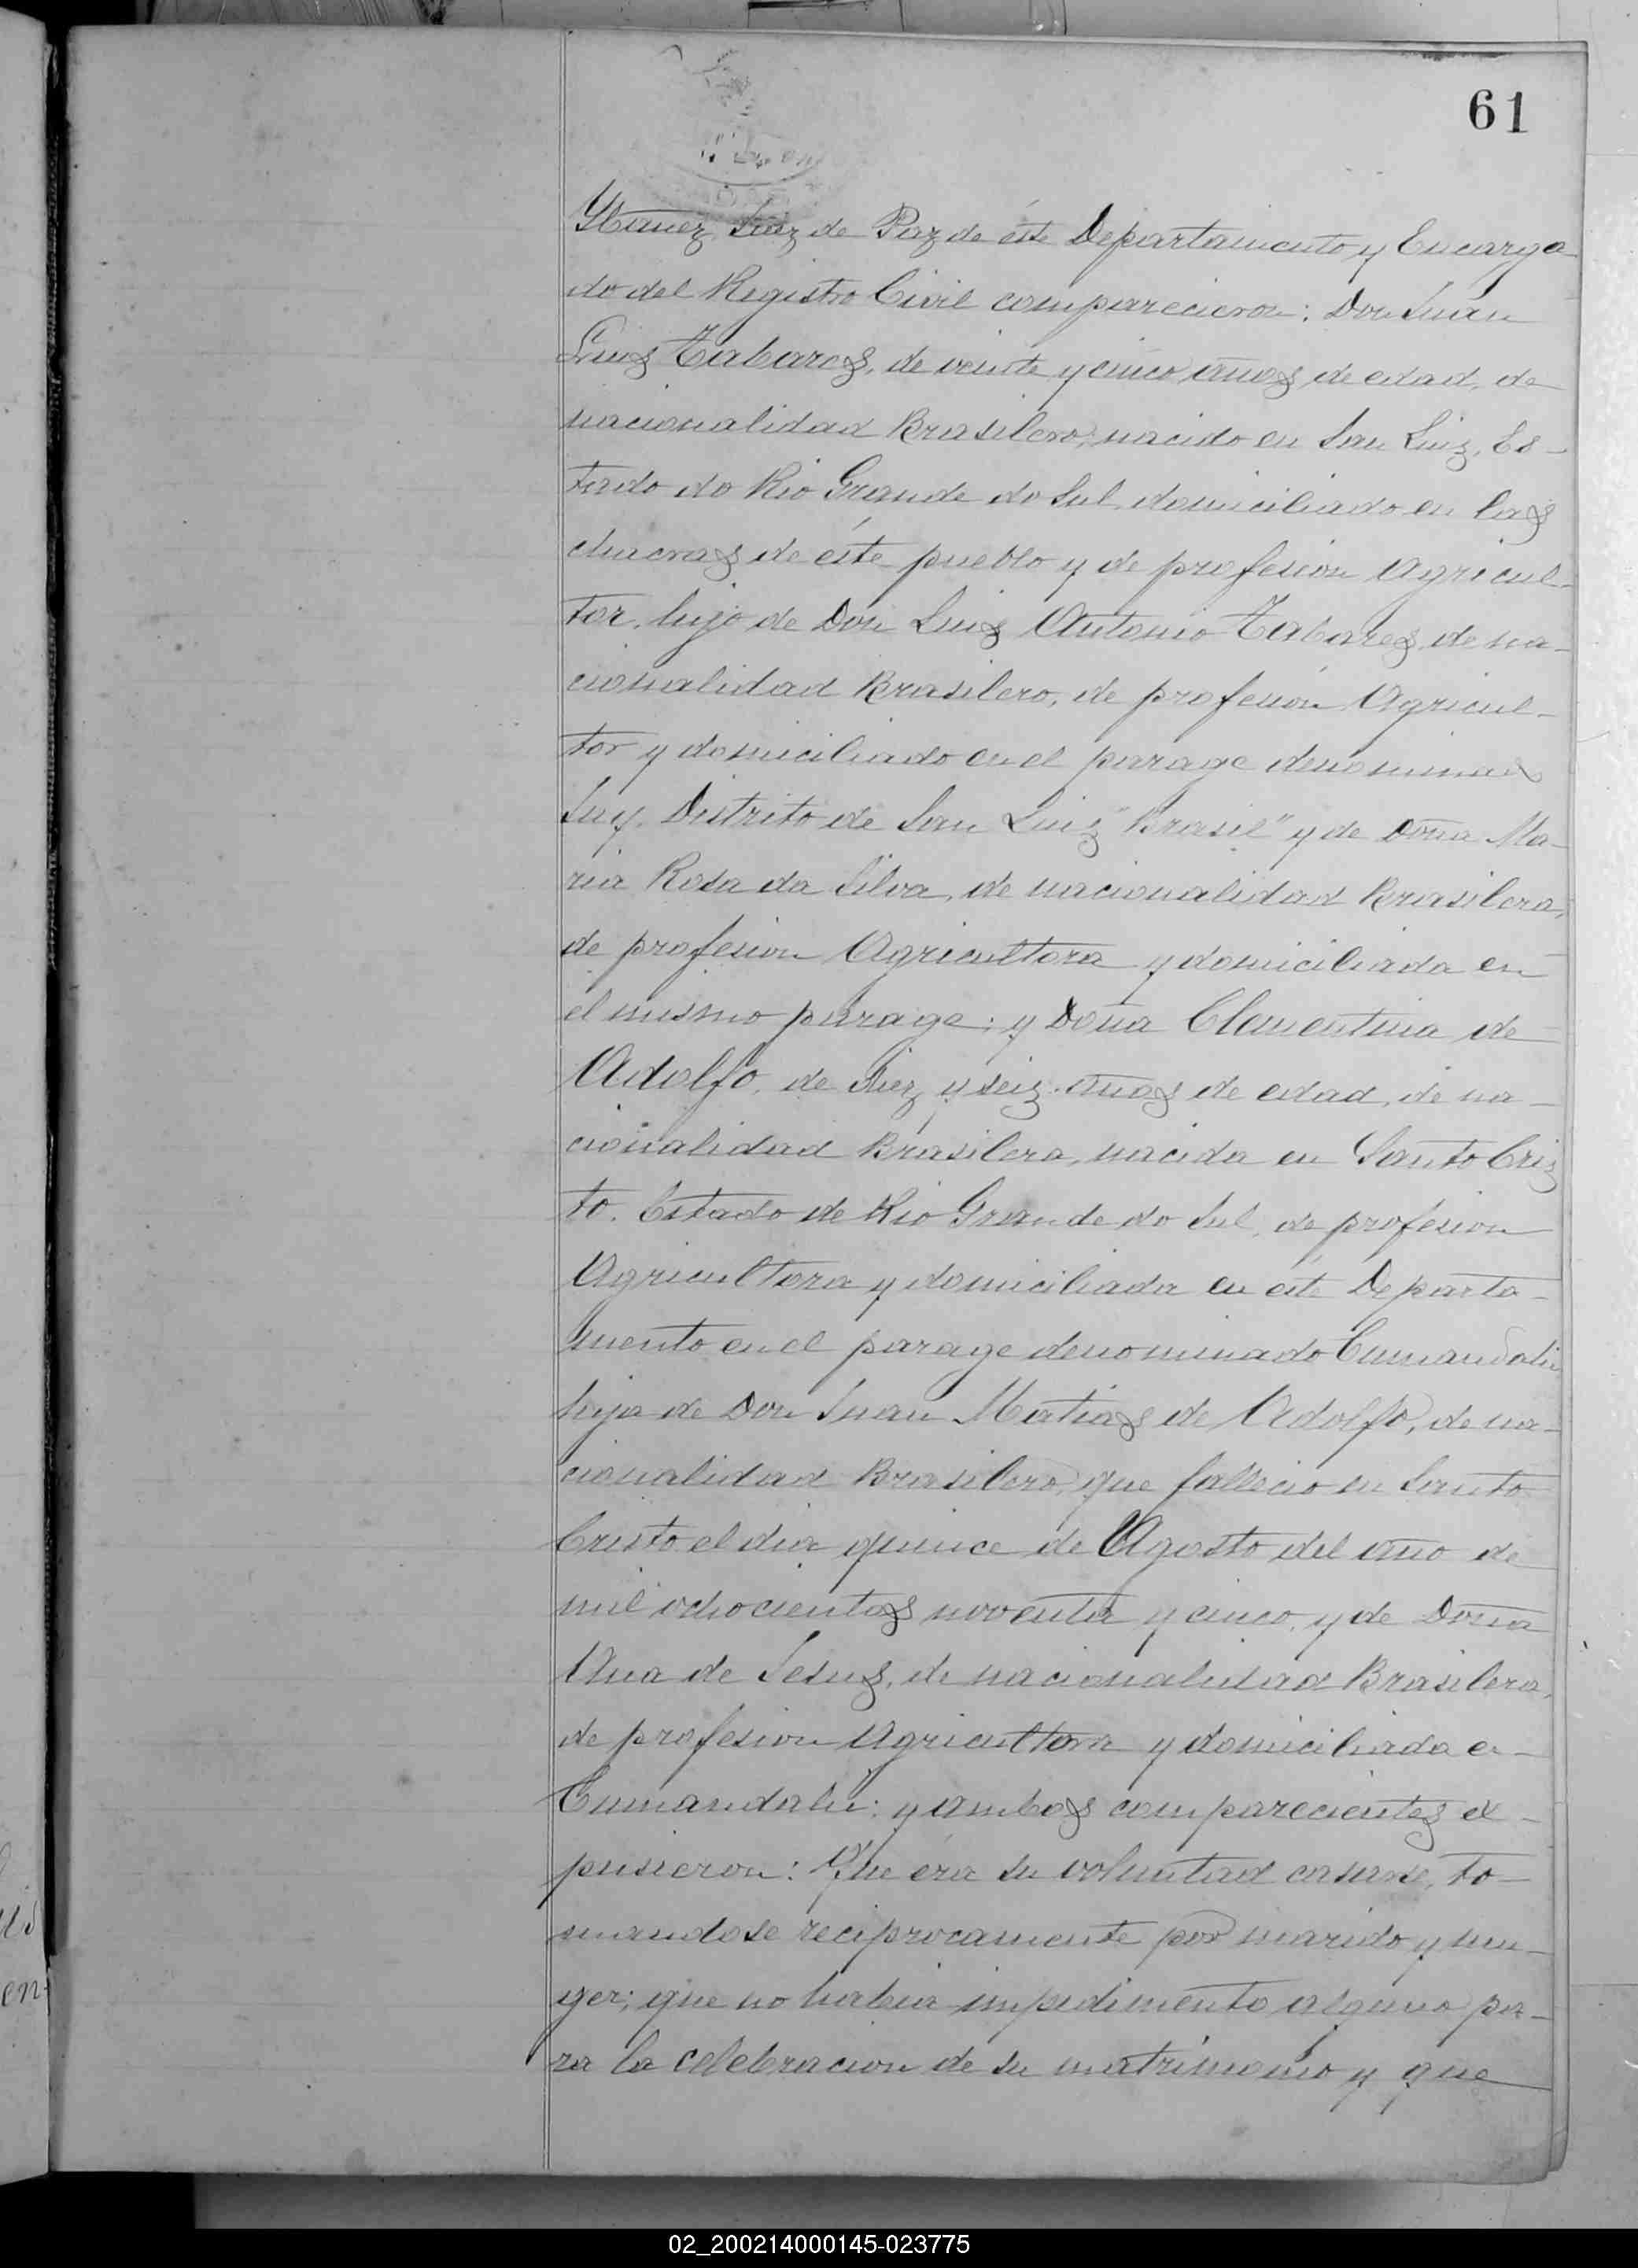 61
Ybañez, Juez de Paz de éste Departamento y Encarga
do del Registro Civil comparecieron: Don Juan
Luis Tabares, de veinte y cinco años de edad, de
nacionalidad Brasilero, nacido en San Luiz, Es-
tado do Rio Grande do Sul, domiciliado en las
chacras de éste pueblo y de profesion Agricul-
tor, hijo de Don Luis Antonio Tabares, de na-
cionalidad Brasilero, de profesión Agricul-
tor y domiciliado en el parage denominado
Juy, Distrito de San Luiz "Brasil" y de Doña Ma-
ria Rosa da Silva, de nacionalidad Brasilera,
de profesion Agricultora y domiciliada en
el mismo parage; y Doña Clementina de
Adolfo, de Diez y seiz años de edad, de na-
cionalidad Brasilera, nacida en Santo Criz
to. Estado de Rio Grande do Sul, de profesion
Agricultora y domiciliada en éste Departa-
mento en el parage denominado Cumandahi,
hija de Don Juan Matias de Adolfo, de na-
cionalidad Brasilero, que fallecio en Santo
Cristo el dia quince de Agosto del año de
mil ochocientos noventa y cinco, y de Doña
Ana de Jesus, de nacionalidad Brasilera,
de profesion Agricultora y domiciliada en
Cumandahi: y ambos comparecientes ex-
pusieron: Que éra su voluntad casarse, to-
mandose reciprocamente por marido y mu-
ger; que no habia impedimento alguno pa-
ra la celebracion de su matrimonio y que
02_200214000145-023775